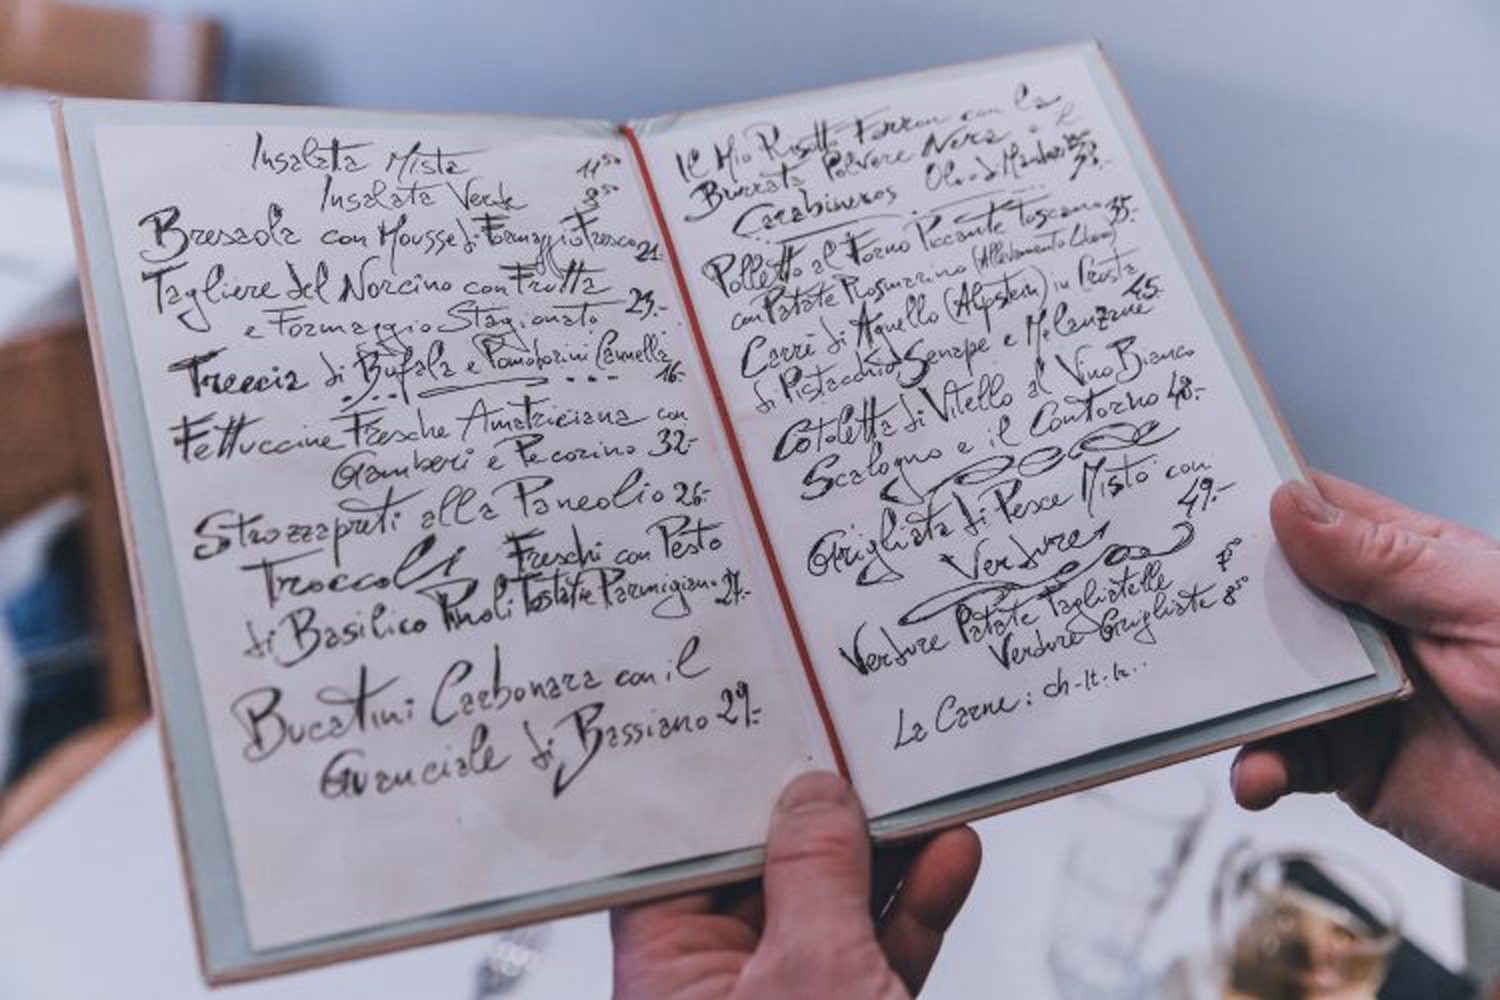 Insalata Mista 11⁵⁰
Insalata Verde 9⁵⁰
Bresaola con Mousse di Formaggio Fresco 21.-
Tagliere del Norcino con Frutta
e Formaggio Stagionato 23.-
Treccia di Bufala e Pomodorini Cannella
16.-
Fettuccine Fresche Amatriciana con
Gamberi e Pecorino 32.-
Strozzapreti alla Paneolio 26.-
Troccoli Freschi con Pesto
di Basilico Pinoli Tostati e Parmigiano 27.-
Bucatini Carbonara con il
Guanciale di Bassiano 29.-
Il Mio Risotto con la
Burrata Polvere Nera e il
Carabineros Olio di 39.-
Polletto al Forno Piccante Toscano 35.-
con Patate Rosmarino (Allevamento)
Carrè di Agnello (Alpstein) in Crosta
di Pistacchio, Senape e Melanzane 45.-
Cotoletta di Vitello al Vino Bianco
Scalogno e il Contorno 48.-
Grigliata di Pesce Misto con
Verdure 49.-
Verdure Patate Tagliatelle
Verdure Grigliate 8⁵⁰
La Carne: ch-It.